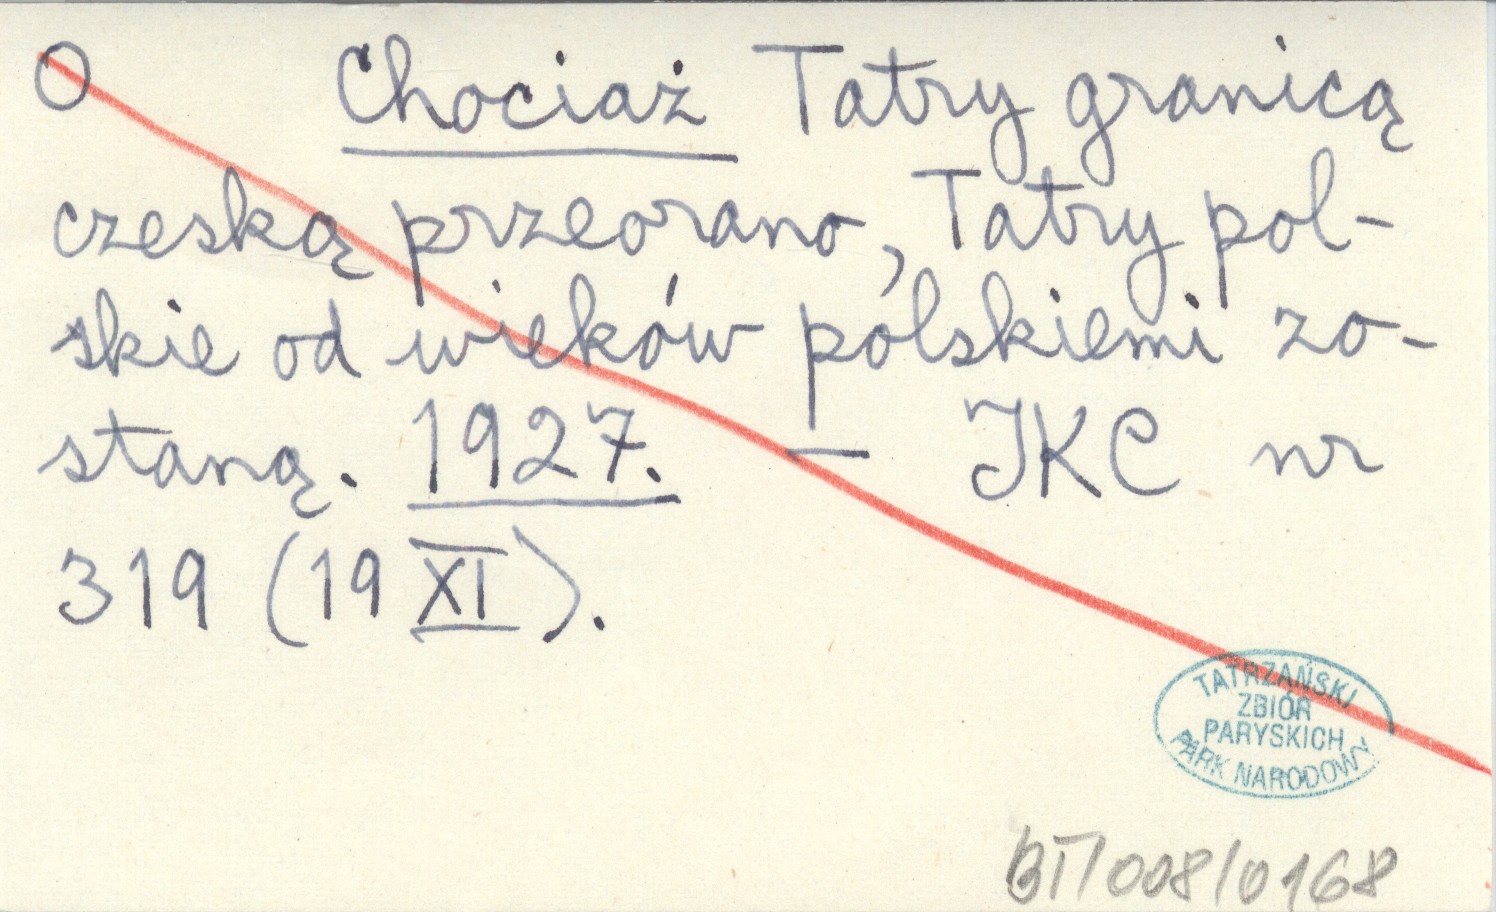 O Chociaż Tatry granicą
czeską przeorano, Tatry pol-
skie od wieków polskiemi zo-
staną. 1927. — IKC nr
319 (19 XI).
TATRZAŃSKI
ZBIÓR
PARYSKICH
PARK NARODOWY
BT/008/0168